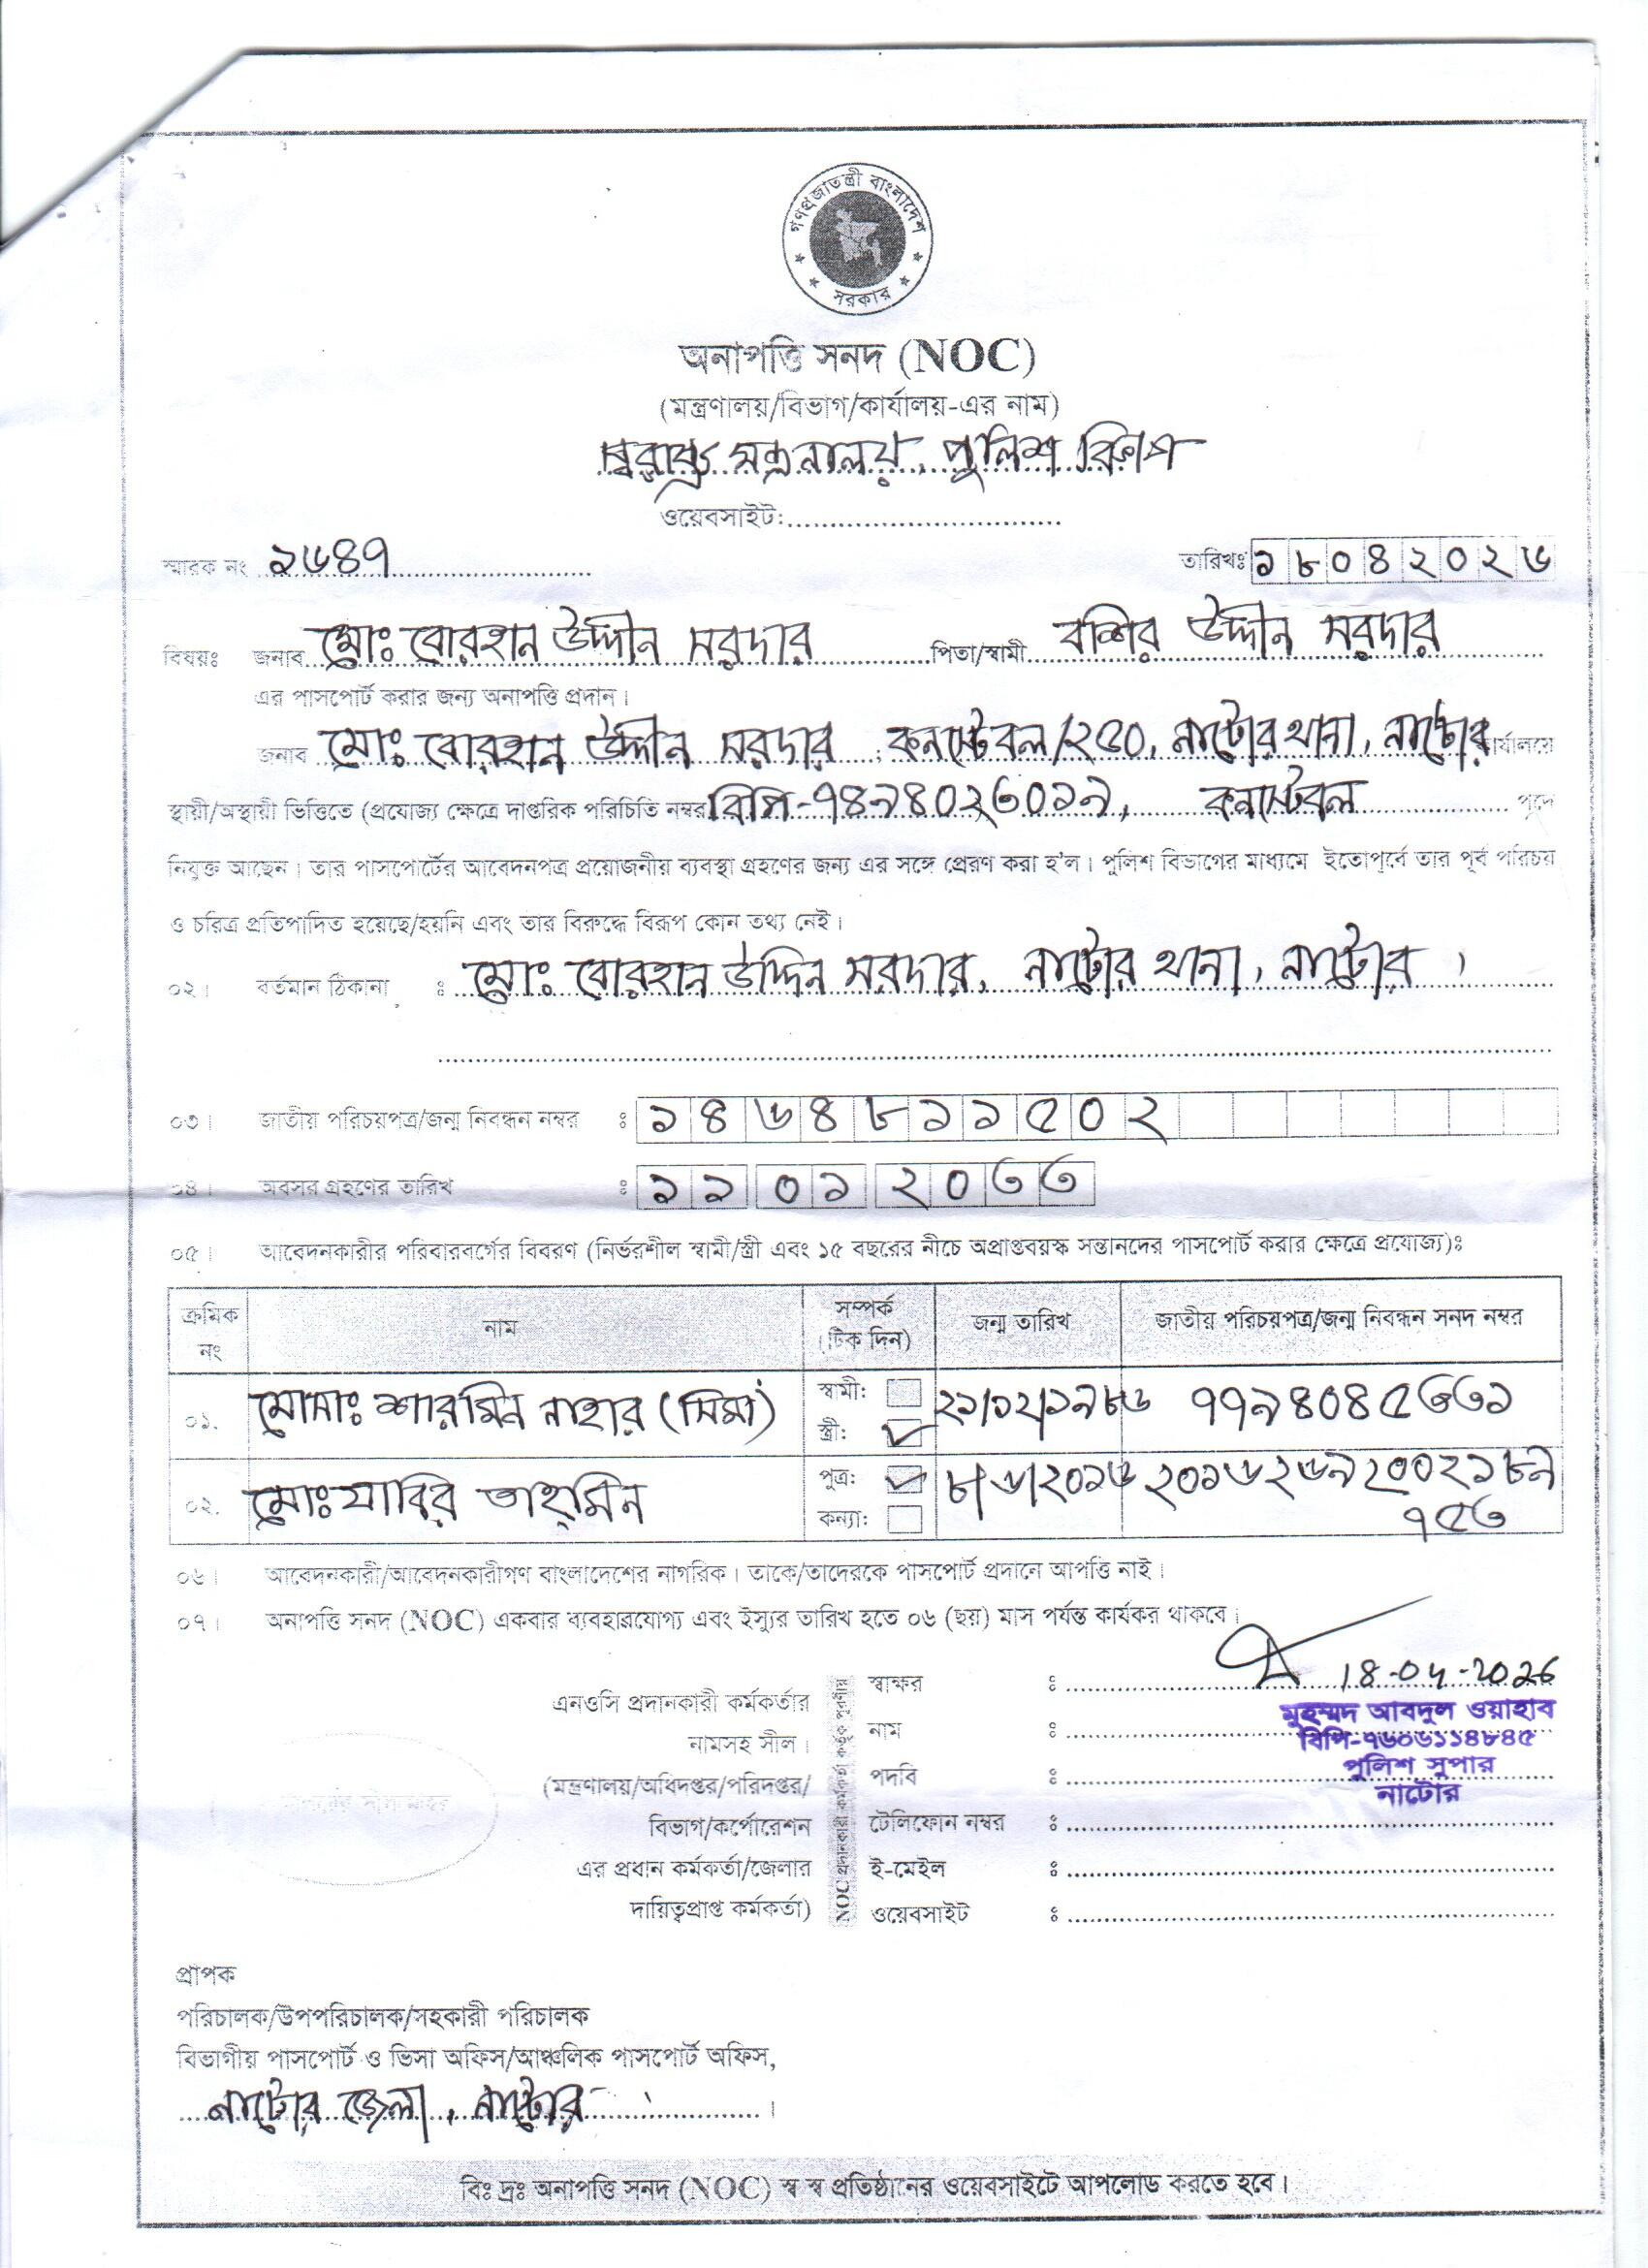 গণপ্রজাতন্ত্রী বাংলাদেশ
সরকার
অনাপত্তি সনদ (NOC)
(মন্ত্রণালয়/বিভাগ/কার্যালয়-এর নাম)
স্বরাষ্ট্র মন্ত্রনালয়, পুলিশ বিভাগ
ওয়েবসাইট:
স্মারক নং ১৬৪৭ তারিখঃ ১৮০৪২০২৬
বিষয়ঃ জনাব মোঃ বোরহান উদ্দীন সরদার পিতা/স্বামী বশির উদ্দীন সরদার
এর পাসপোর্ট করার জন্য অনাপত্তি প্রদান।
জনাব মোঃ বোরহান উদ্দীন সরদার, কনস্টেবল/২৫০, নাটোর থানা, নাটোর কার্যালয়ে
স্থায়ী/অস্থায়ী ভিত্তিতে (প্রযোজ্য ক্ষেত্রে দাপ্তরিক পরিচিতি নম্বর বিপি-৭৪৯৪০২৩০১৯, কনস্টেবল পদে
নিযুক্ত আছেন। তার পাসপোর্টের আবেদনপত্র প্রয়োজনীয় ব্যবস্থা গ্রহণের জন্য এর সঙ্গে প্রেরণ করা হ'ল। পুলিশ বিভাগের মাধ্যমে ইতোপূর্বে তার পূর্ব পরিচয়
ও চরিত্র প্রতিপাদিত হয়েছে/হয়নি এবং তার বিরুদ্ধে বিরূপ কোন তথ্য নেই।
০২। বর্তমান ঠিকানা ঃ মোঃ বোরহান উদ্দিন সরদার, নাটোর থানা, নাটোর।
০৩। জাতীয় পরিচয়পত্র/জন্ম নিবন্ধন নম্বর ঃ ১৪৬৪৮১১৫০২
০৪। অবসর গ্রহণের তারিখ ঃ ১১ ০১ ২০৩৩
০৫। আবেদনকারীর পরিবারবর্গের বিবরণ (নির্ভরশীল স্বামী/স্ত্রী এবং ১৫ বছরের নীচে অপ্রাপ্তবয়স্ক সন্তানদের পাসপোর্ট করার ক্ষেত্রে প্রযোজ্য)ঃ
ক্রমিক নং নাম সম্পর্ক (টিক দিন) জন্ম তারিখ জাতীয় পরিচয়পত্র/জন্ম নিবন্ধন সনদ নম্বর
০১. মোসাঃ শারমিন নাহার (সিমা) স্বামী: স্ত্রী: ২১/১২/১৯৮৬ ৭৭৯৪০৪৫৩৩১
০২. মোঃ যাবির তাহ্‌মিন পুত্র: কন্যা: ৮/৬/২০১৬ ২০১৬২৬৯২০০২১৮৯
৭৫৩
০৬। আবেদনকারী/আবেদনকারীগণ বাংলাদেশের নাগরিক। তাকে/তাদেরকে পাসপোর্ট প্রদানে আপত্তি নাই।
০৭। অনাপত্তি সনদ (NOC) একবার ব্যবহারযোগ্য এবং ইস্যুর তারিখ হতে ০৬ (ছয়) মাস পর্যন্ত কার্যকর থাকবে।
এনওসি প্রদানকারী কর্মকর্তার
নামসহ সীল।
(মন্ত্রণালয়/অধিদপ্তর/পরিদপ্তর/
বিভাগ/কর্পোরেশন
এর প্রধান কর্মকর্তা/জেলার
দায়িত্বপ্রাপ্ত কর্মকর্তা)
NOC প্রদানকারী কর্মকর্তা কর্তৃক পূরণীয়
স্বাক্ষর ঃ 18-04-2026
নাম ঃ মুহম্মদ আবদুল ওয়াহাব
বিপি-৭৬০৬১১৪৮৪৫
পদবি ঃ পুলিশ সুপার
নাটোর
টেলিফোন নম্বর ঃ
ই-মেইল ঃ
ওয়েবসাইট ঃ
প্রাপক
পরিচালক/উপপরিচালক/সহকারী পরিচালক
বিভাগীয় পাসপোর্ট ও ভিসা অফিস/আঞ্চলিক পাসপোর্ট অফিস,
নাটোর জেলা, নাটোর।
বিঃ দ্রঃ অনাপত্তি সনদ (NOC) স্ব স্ব প্রতিষ্ঠানের ওয়েবসাইটে আপলোড করতে হবে।